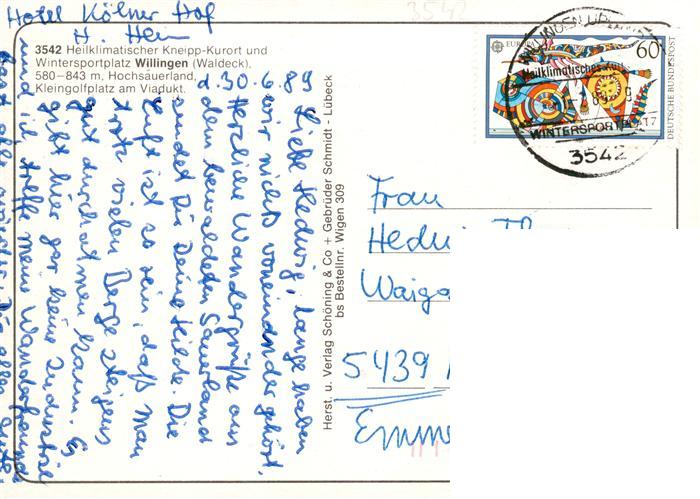 Hotel Kölner Hof
H. Hein
3542 Heilklimatischer Kneipp-Kurort und
Wintersportplatz Willingen (Waldeck),
580–843 m, Hochsauerland,
Kleingolfplatz am Viadukt.
d. 30.6.89
Liebe Hedwig, lange haben
wir nichts voneinander gehört.
Herzliche Wandergrüße aus
dem bewaldeten Sauerland
sendet Dir Deine Hilde. Die
Luft ist so rein, daß man
trotz vielen Berge steigens
gut durchatmen kann. Es
gibt hier gar keine Industrie
und ich treffe meine Wanderfreunde
Herst. u. Verlag Schöning & Co + Gebrüder Schmidt - Lübeck
bs Bestellnr. Wigen 309
EUROPA
60
DEUTSCHE BUNDESPOST
Heilklimatischer
WINTERSPORTPLATZ
3542
Frau
5439